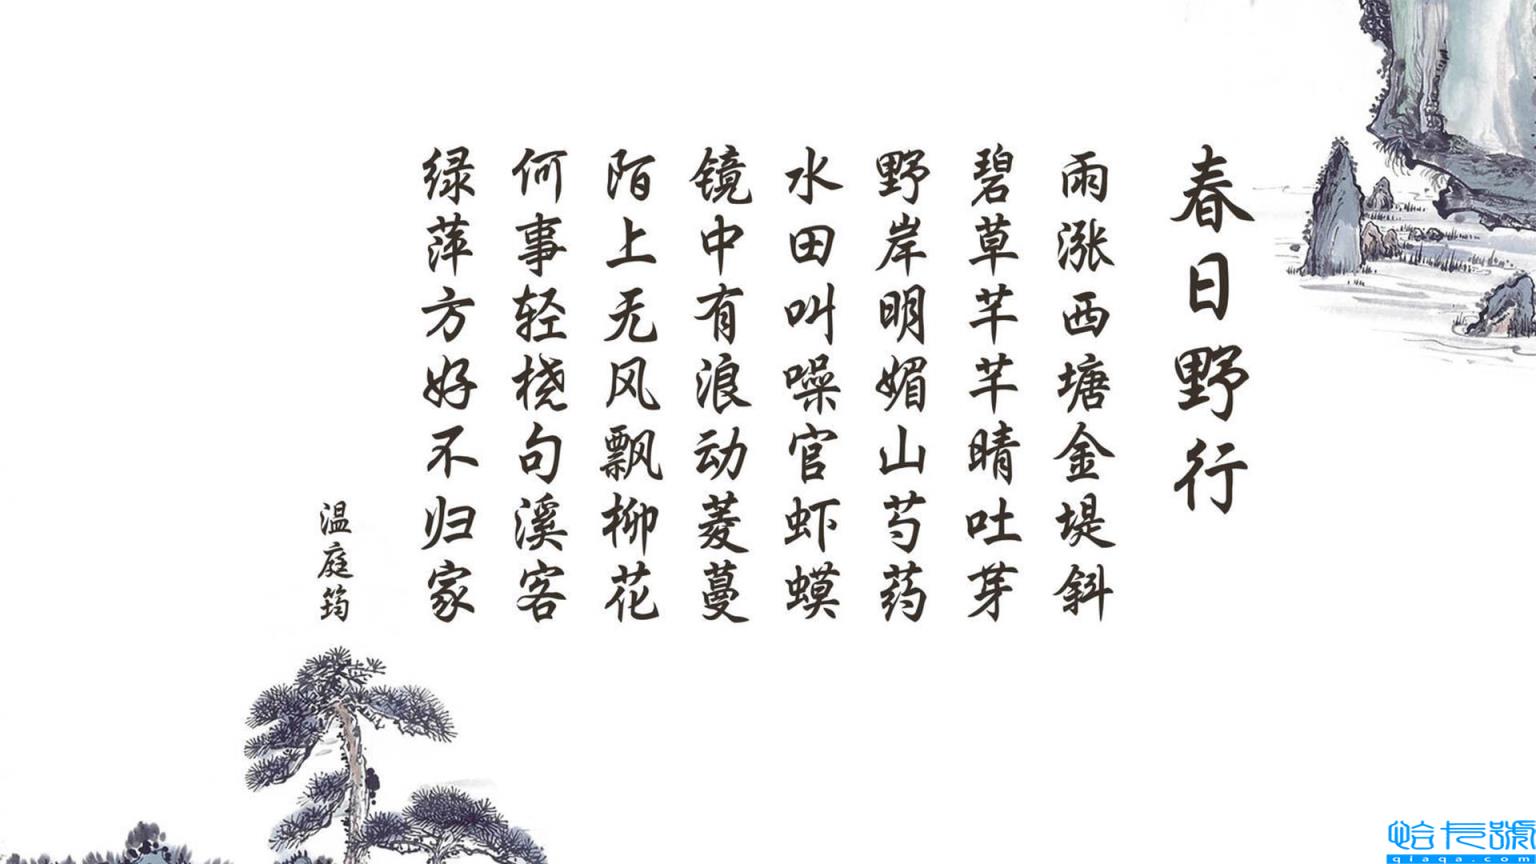 春日野行
雨涨西塘金堤斜
碧草芊芊晴吐芽
野岸明媚山芍药
水田叫噪官虾蟆
镜中有浪动菱蔓
陌上无风飘柳花
何事轻桡句溪客
绿萍方好不归家
温庭筠
恰卡號
qiaqa.com